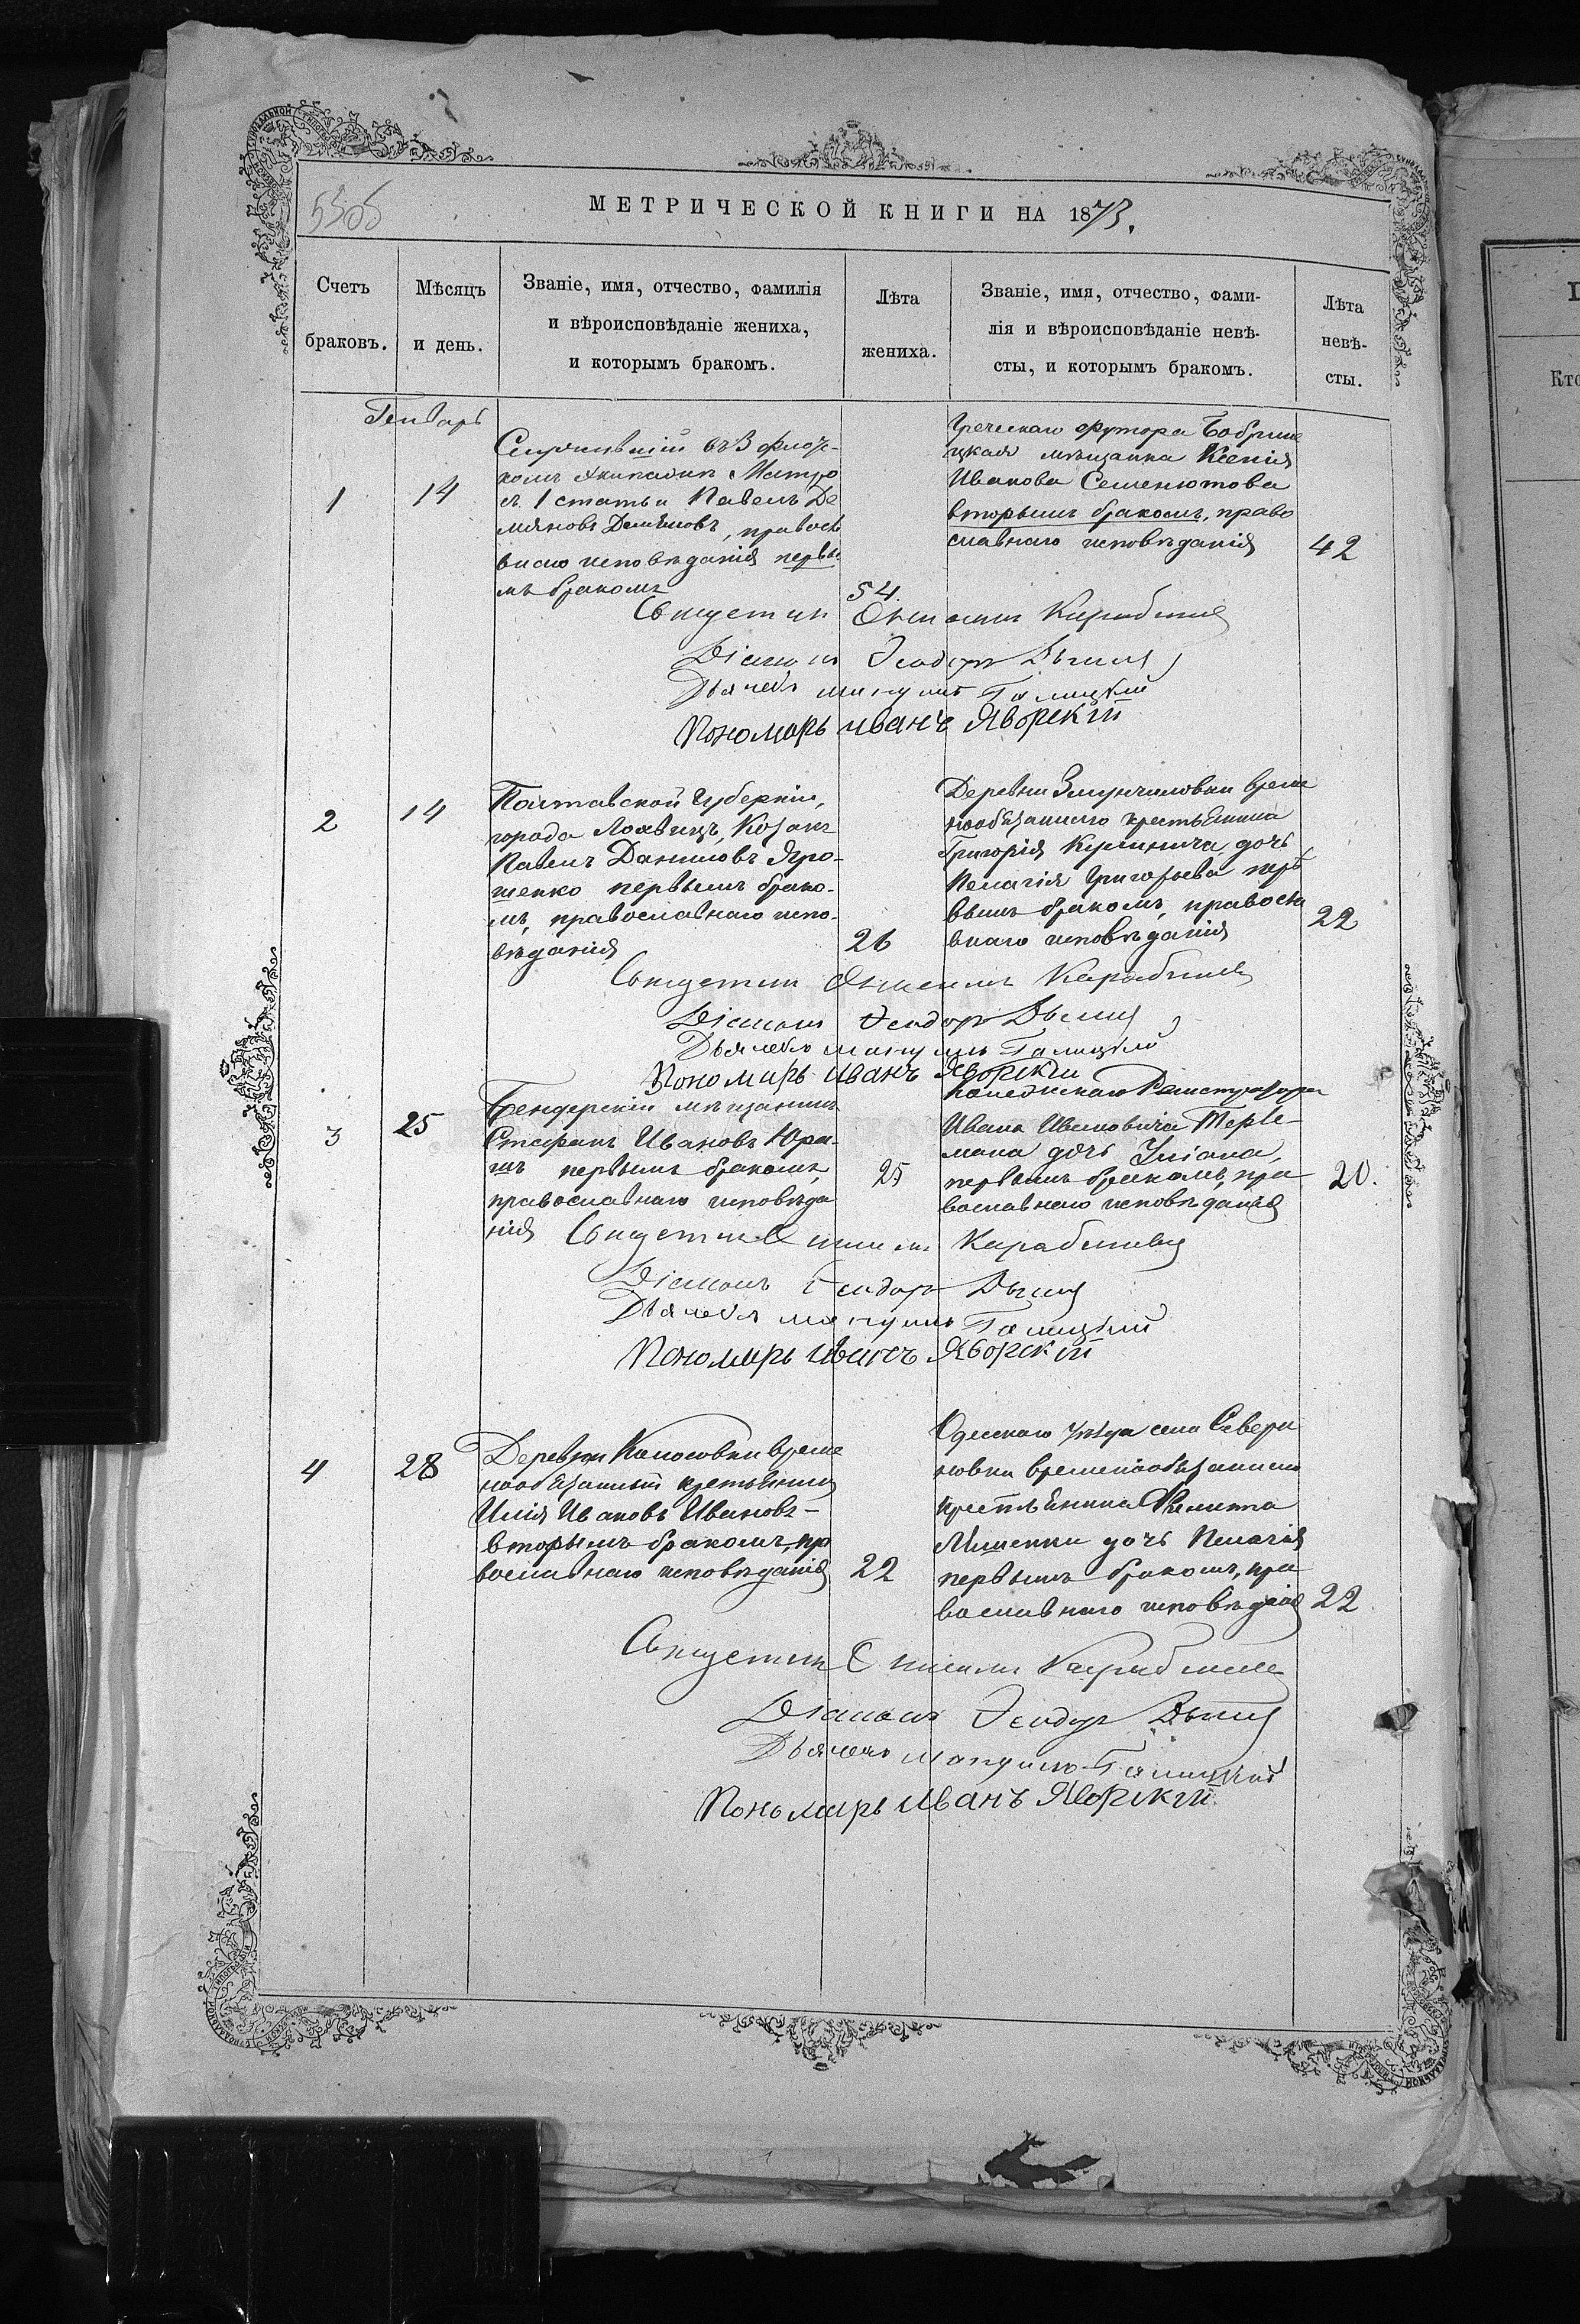 МЕТРИЧЕСКОЙ КНИГИ НА 1873.
Счетъ
браковъ.
Мѣсяцъ
и день.
Званіе, имя, отчество, фамилія
и вѣроисповѣданіе жениха,
и которымъ бракомъ.
Лѣта
жениха.
Званіе, имя, отчество, фами-
лія и вѣроисповѣданіе невѣ-
сты, и которымъ бракомъ.
Лѣта
невѣ-
сты.
Генварь
1
14
Служившій въ 3 флотс-
комъ Экипажѣ Матро
съ 1 статьи Павелъ Де
мяновъ, правосл
внаго исповѣданія первы
мъ бракомъ
54.
Греческаго футора Бобрине
цкая мѣщанка Ксенія
Иванова Семенютова
вторымъ бракомъ, право
славнаго исповѣданія
42
Діаконъ Ѳеодоръ
Дьячекъ Галицкій
Пономарь Иванъ Яворскій
2
14
Полтавской Губерніи,
города Лохвицъ, Козакъ
Павелъ Даниловъ Яро-
шенко первымъ брако-
мъ, православнаго испо-
вѣданія
26
Деревни време
ннообязаннаго крестьянина
Григорія дочь
Пелагія Григорьева пер
вымъ бракомъ, правосла
внаго исповѣданія
22
Діаконъ Ѳеодоръ
Дьячекъ Галицкій
Пономарь Иванъ Яворскій
3
25
Бендерскій мѣщанинъ
Стефанъ Ивановъ Юра-
шъ первымъ бракомъ,
православнаго исповѣда
нія
25
Колежскаго Регистратора
Ивана Ивановича Терле-
мана дочь Уліана,
первымъ бракомъ, пра
вославнаго исповѣданія
20.
Діаконъ Ѳеодоръ
Дьячекъ Галицкій
Пономарь Иванъ Яворскій
4
28
Деревни Колосовки време
нообязанный крестьянинъ
Илія Ивановъ Ивановъ-
вторымъ бракомъ, пра
вославнаго исповѣданія
22
Одескаго уѣзда села Севери
новки временнообязаннаго
крестьянина
дочь Пелагія
первымъ бракомъ, пра
вославнаго исповѣданія
22
Діаконъ Ѳеодоръ
Дьячекъ Галицкій
Пономарь Иванъ Яворскій